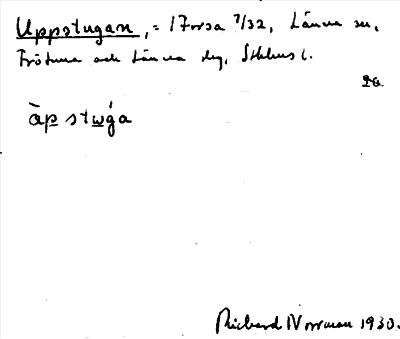 Uppstugan, = i Forsa 7/32, Länna sn,
Frötuna och Länna slg, Sthlms l.
äp stwǵa
Richard Norrman 1930.